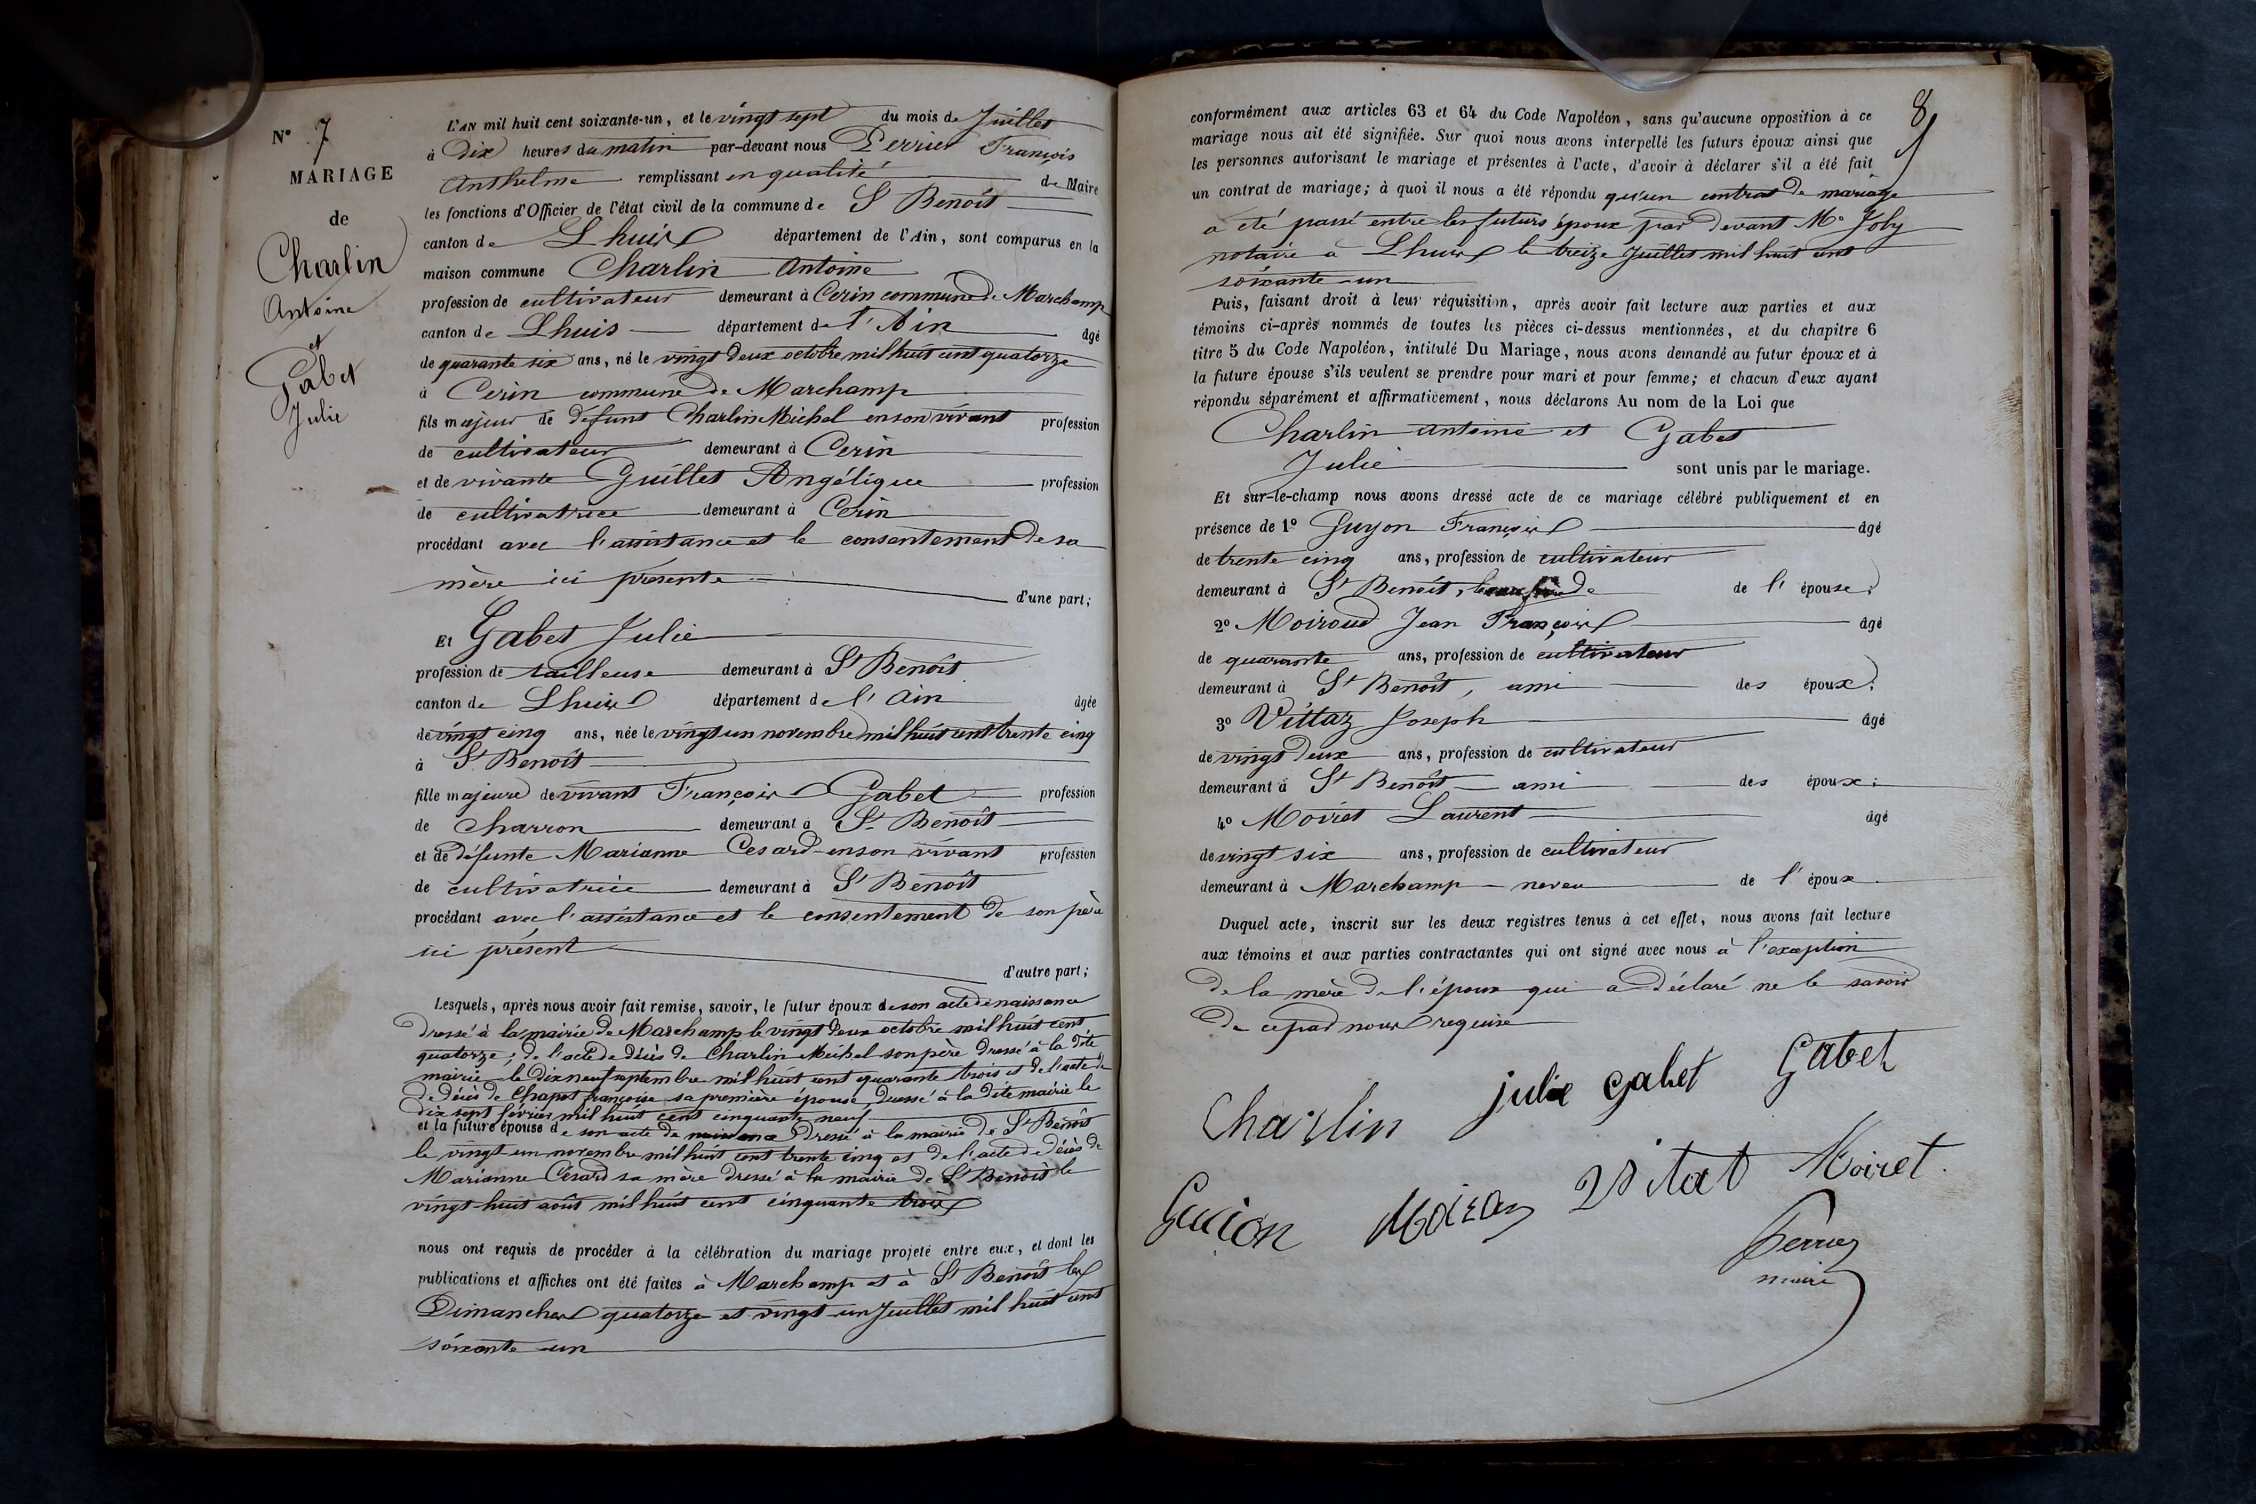 N° 7
MARIAGE
de
Charlin
Antoine
et
Gabet
Julie
L'AN mil huit cent soixante-un, et le vingt sept du mois de Juillet
à Dix heures du matin par-devant nous Perrier François
Anthelme remplissant en qualité de Maire
les fonctions d'Officier de l'état civil de la commune de St Benoît
canton de Lhuis département de l'Ain, sont comparus en la
maison commune Charlin Antoine
profession de cultivateur demeurant à Cerin commune de Marchamp
canton de Lhuis département de l'Ain âgé
de quarante six ans, né le vingt deux octobre mil huit cent quatorze
à Cerin commune de Marchamp
fils majeur de défunt Charlin Michel en son vivant profession
de cultivateur demeurant à Cerin
et de vivante Guillet Angélique profession
de cultivatrice demeurant à Cerin
procédant avec l'assistance et le consentement de sa
mère ici présente d'une part;
Et Gabet Julie
profession de tailleuse demeurant à St Benoît
canton de Lhuis département de l'Ain âgée
de vingt cinq ans, née le vingt un novembre mil huit cent trente cinq
à St Benoît
fille majeure de vivant François Gabet profession
de charron demeurant à St Benoît
et de défunte Marianne Cesard en son vivant profession
de cultivatrice demeurant à St Benoît
procédant avec l'assistance et le consentement de son père
ici présent
d'autre part;
Lesquels, après nous avoir fait remise, savoir, le futur époux de son acte de naissance
Dressé à la mairie de Marchamp le vingt deux octobre mil huit cent
quatorze; de l'acte de décès de Charlin Michel son père dressé à la dite
mairie le dix neuf septembre mil huit cent quarante trois et de l'acte de
de décès de Chapot françoise sa première épouse dressé à la dite mairie le
dix sept février mil huit cent cinquante neuf
et la future épouse de son acte de naissance dressé à la mairie de St Benoît
le vingt un novembre mil huit cent trente cinq et de l'acte de décès de
Marianne Césard sa mère dressé à la mairie de St Benoit le
vingt huit août mil huit cent cinquante trois
nous ont requis de procéder à la célébration du mariage projeté entre eux, et dont les
publications et affiches ont été faites à Marchamp et à St Benoît les
Dimanches quatorze et vingt un Juillet mil huit cent
soixante un
8
conformément aux articles 63 et 64 du Code Napoléon, sans qu'aucune opposition à ce
mariage nous ait été signifiée. Sur quoi nous avons interpellé les futurs époux ainsi que
les personnes autorisant le mariage et présentes à l'acte, d'avoir à déclarer s'il a été fait
un contrat de mariage; à quoi il nous a été répondu qu'un contrat de mariage
a été passé entre les futurs époux par devant Me Joly
notaire à Lhuis le treize Juillet mil huit cent
soixante un
Puis, faisant droit à leur réquisition, après avoir fait lecture aux parties et aux
témoins ci-après nommés de toutes les pièces ci-dessus mentionnées, et du chapitre 6
titre 5 du Code Napoléon, intitulé Du Mariage, nous avons demandé au futur époux et à
la future épouse s'ils veulent se prendre pour mari et pour femme; et chacun d'eux ayant
répondu séparément et affirmativement, nous déclarons Au nom de la Loi que
Charlin Antoine et Gabet
Julie sont unis par le mariage.
Et sur-le-champ nous avons dressé acte de ce mariage célébré publiquement et en
présence de 1° Guyon François âgé
de trente cinq ans, profession de cultivateur
demeurant à St Benoît, beau frère de l'épouse;
2° Moiroud Jean François âgé
de quarante ans, profession de cultivateur
demeurant à St Benoît, ami des époux;
3° Vittaz Joseph âgé
de vingt deux ans, profession de cultivateur
demeurant à St Benoît ami des époux;
4° Moiret Laurent âgé
de vingt six ans, profession de cultivateur
demeurant à Marchamp neveu de l'époux
Duquel acte, inscrit sur les deux registres tenus à cet effet, nous avons fait lecture
aux témoins et aux parties contractantes qui ont signé avec nous à l'exception
de la mère de l'époux qui a déclaré ne le savoir
de ce par nous requise
Charlin julie gabet Gabet
Guion Vitat Moiret
Perrier
maire